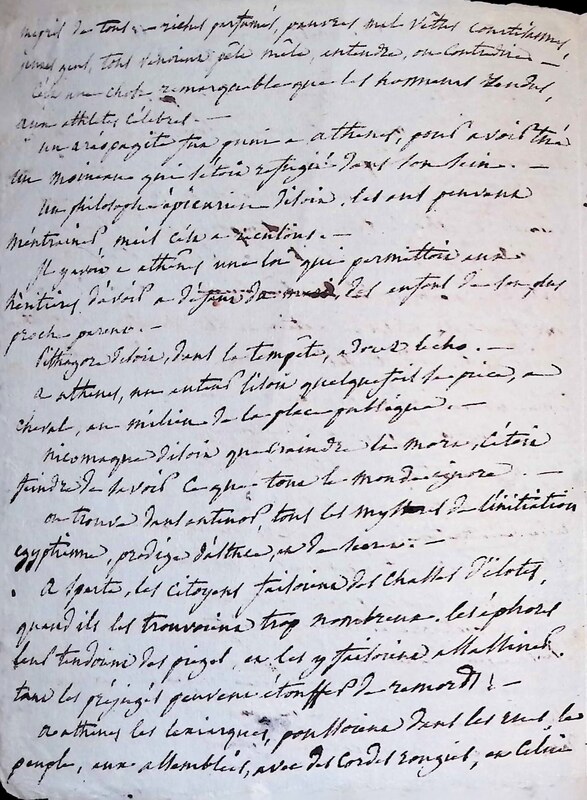 mepris de tous. — riches parfumés, pauvres mal vêtus courtisannes,
jeunes gens, tous venoient pêle mêle, entendre, ou contredire —
C'est une chose remarquable que les honneurs rendus,
aux athletes célebres. —
un aréopagite fut puni a athenes, pour avoir tué
un moineau qui s'etoit refugié dans son sein. —
un philosophe épicurien disoit, les ans peuvent
m'entrainer, mais c'est a reculons. —
Il y avoit a athênes une loi qui permettoit aux
héritieres d'avoir a défaut du mari, des enfans de son plus
proche parent. —
Pithagore disoit, dans la tempête, adorez l'écho. —
a athenes, un auteur lisoit quelquefois sa piece, a
cheval, au milieu de la place publique. —
nicomaque disoit que craindre la mort, c'etoit
feindre de savoir ce que tout le monde ignore. —
on trouve dans tous les mysteres de l'initiation
egyptienne, prodige d'althée, et de —
a sparte, les citoyens faisoient des chasses d'ilotes,
quand ils les trouvoient trop nombreux. les éphores
leur tendoient des pieges, et les y faisoient assassiner.
tant les préjugés peuvent étouffer de remords! —
a athenes les lexiarques, poussoient dans les rues, le
peuple, aux assemblées, avec des cordes rougies, et celui